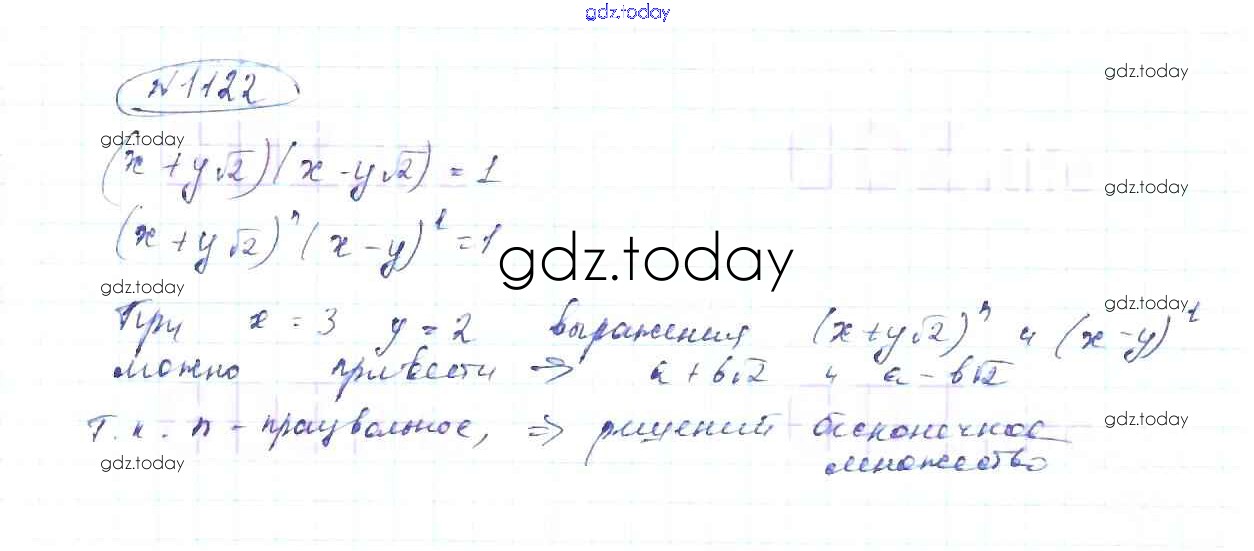 gdz.today
№1122
gdz.today
gdz.today
(x + y√2)(x - y√2) = 1
gdz.today
(x + y√2)ⁿ (x - y)¹ = 1
gdz.today
gdz.today
gdz.today
При x = 3 y = 2 выражения (x + y√2)ⁿ и (x - y)¹
можно привести => a + b√2 и a - b√2
gdz.today
Т.к. n - працвольное, => рищений бесконечное
gdz.today
множество